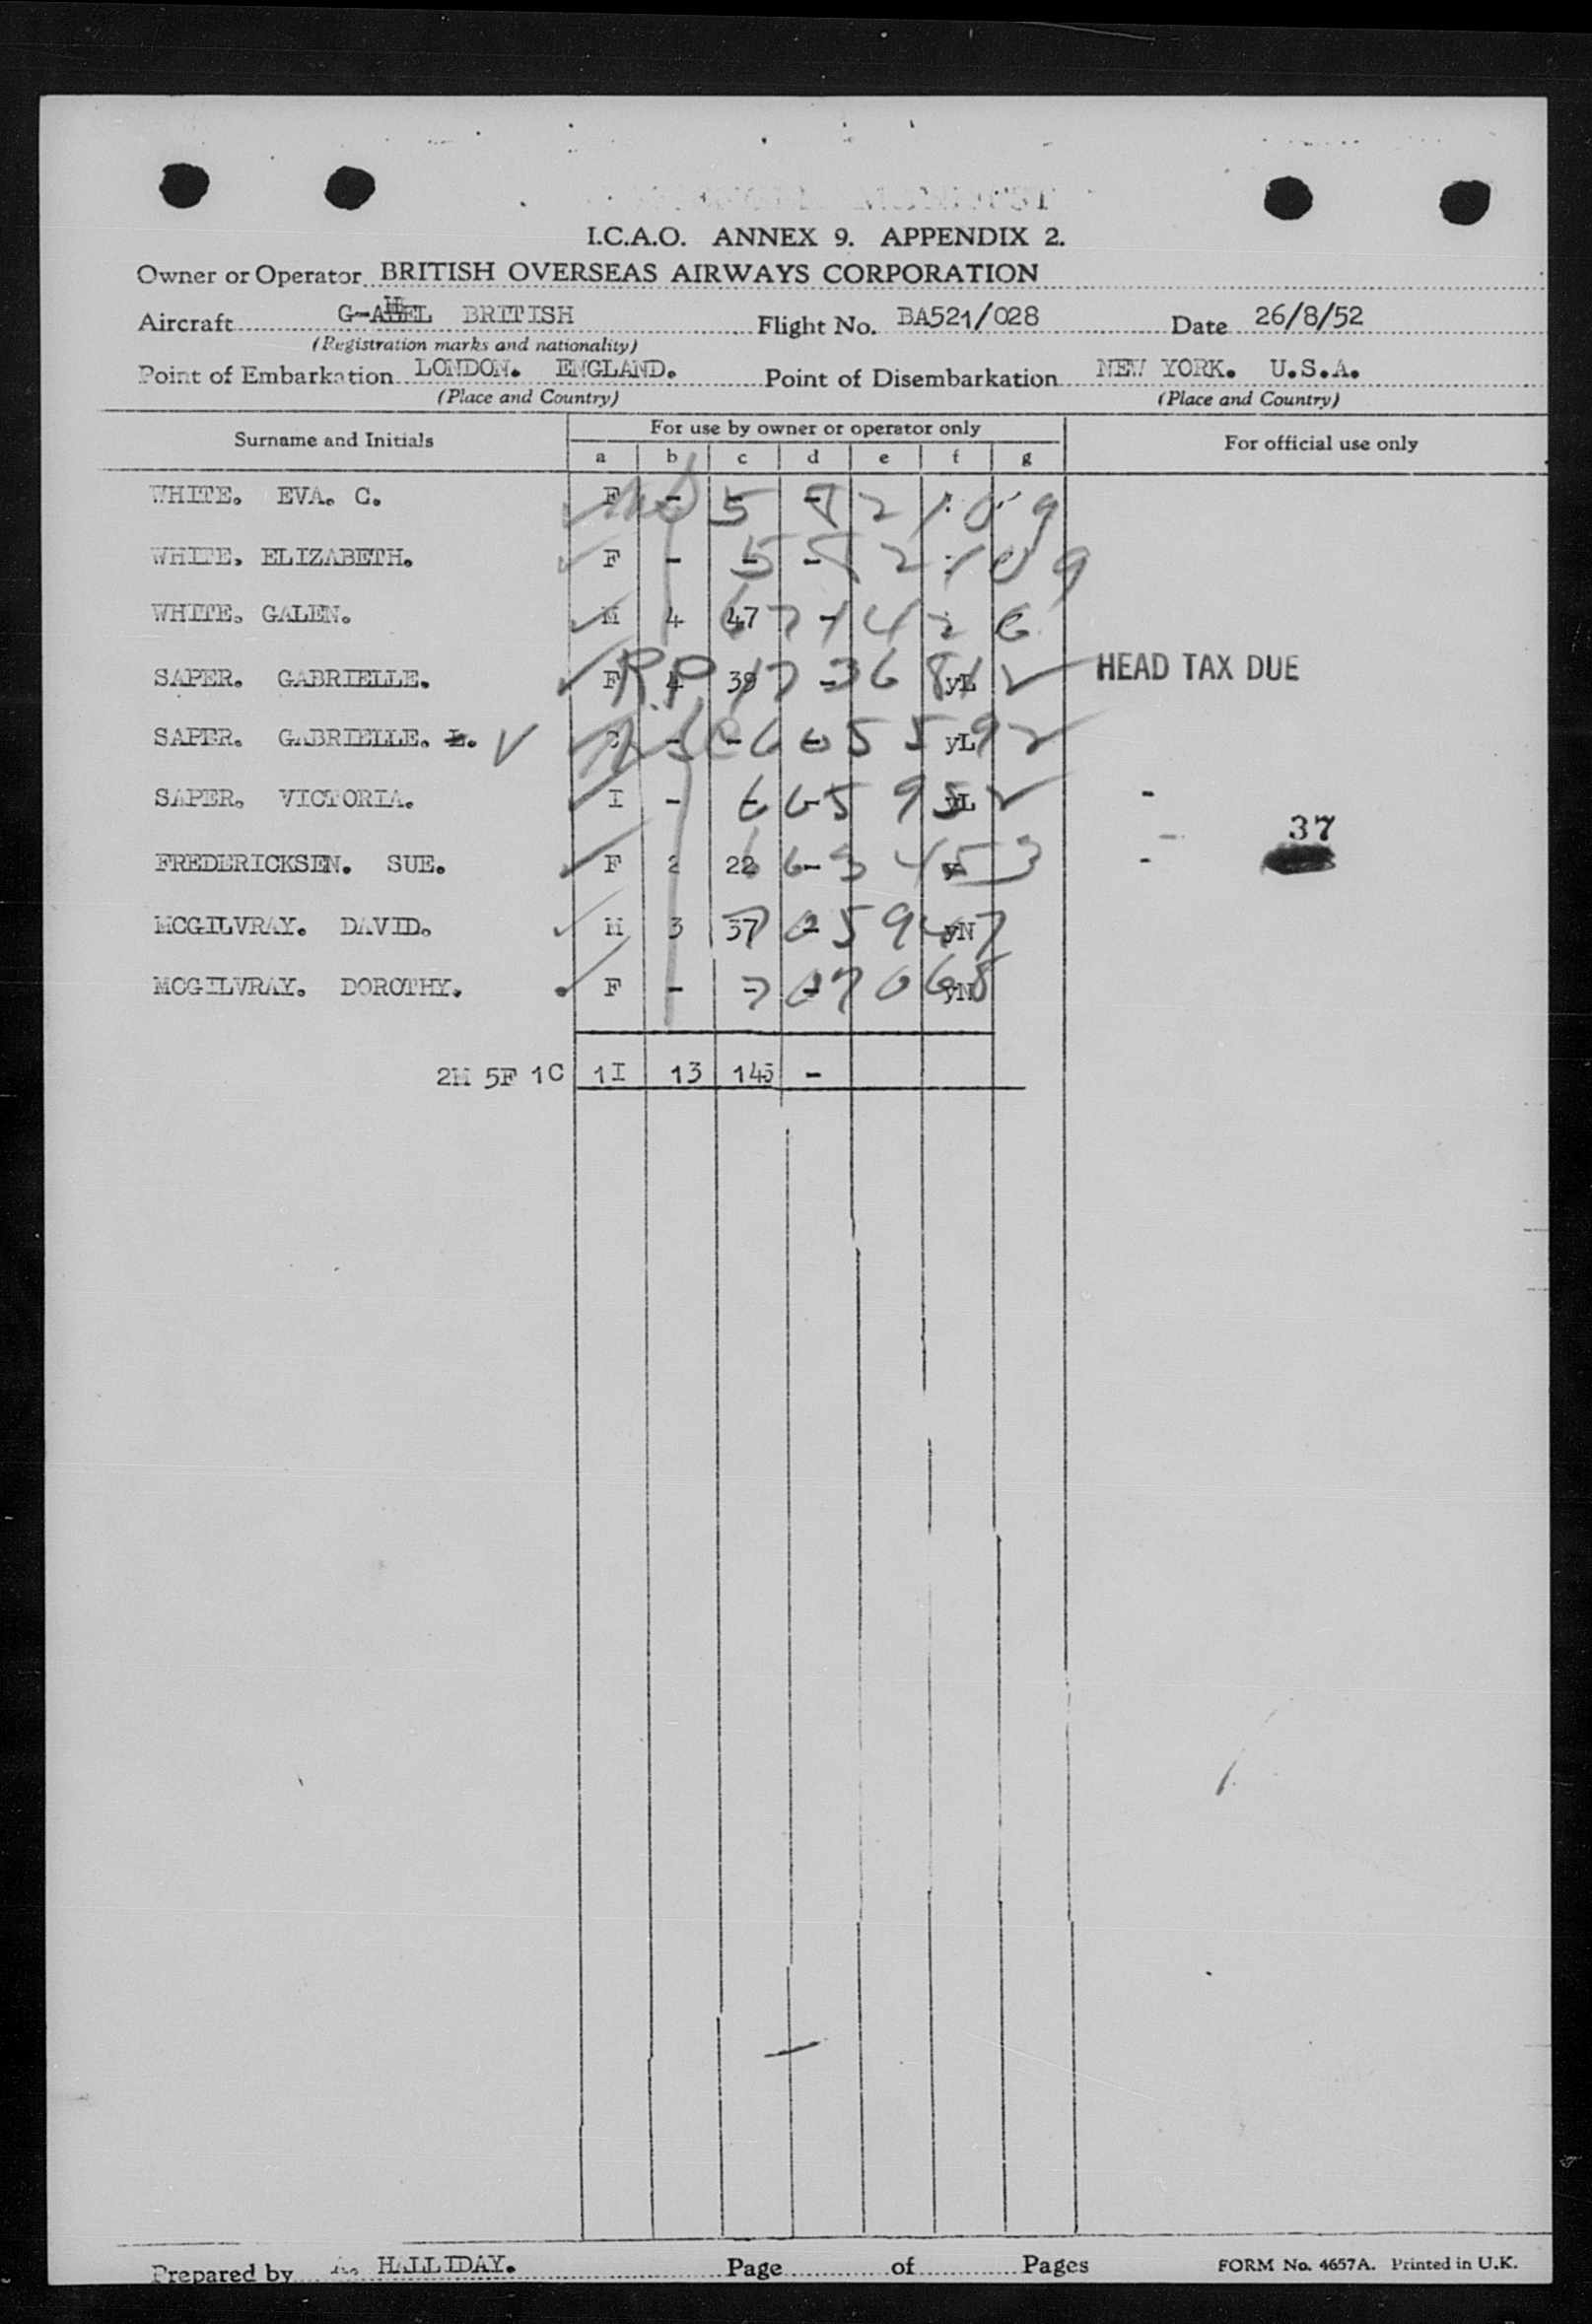 I.C.A.O. ANNEX 9. APPENDIX 2.
Owner or Operator BRITISH OVERSEAS AIRWAYS CORPORATION
Aircraft BRITISH Flight No. BA521/028 Date 26/8/52
(Registration marks and nationality)
Point of Embarkation LONDON. ENGLAND. Point of Disembarkation NEW YORK. U.S.A.
(Place and Country) (Place and Country)
Surname and Initials For use by owner or operator only For official use only
a b c d e f g
WHITE. EVA. C. F - - -
WHITE. ELIZABETH. F - - -
WHITE. GALEN. M 4 47 -
SAPER. GABRIELLE. F 4 39 - yL HEAD TAX DUE
SAPER. GABRIELLE. L. C - - - yL
SAPER. VICTORIA. I - - - yL -
37
FREDERICKSEN. SUE. F 2 22 - y -
MCGILVRAY. DAVID. M 3 37 - yN
MCGILVRAY. DOROTHY. F - - - yN
2M 5F 1C 1I 13 145 -
Prepared by A. HALLIDAY. Page of Pages FORM No. 4657A. Printed in U.K.